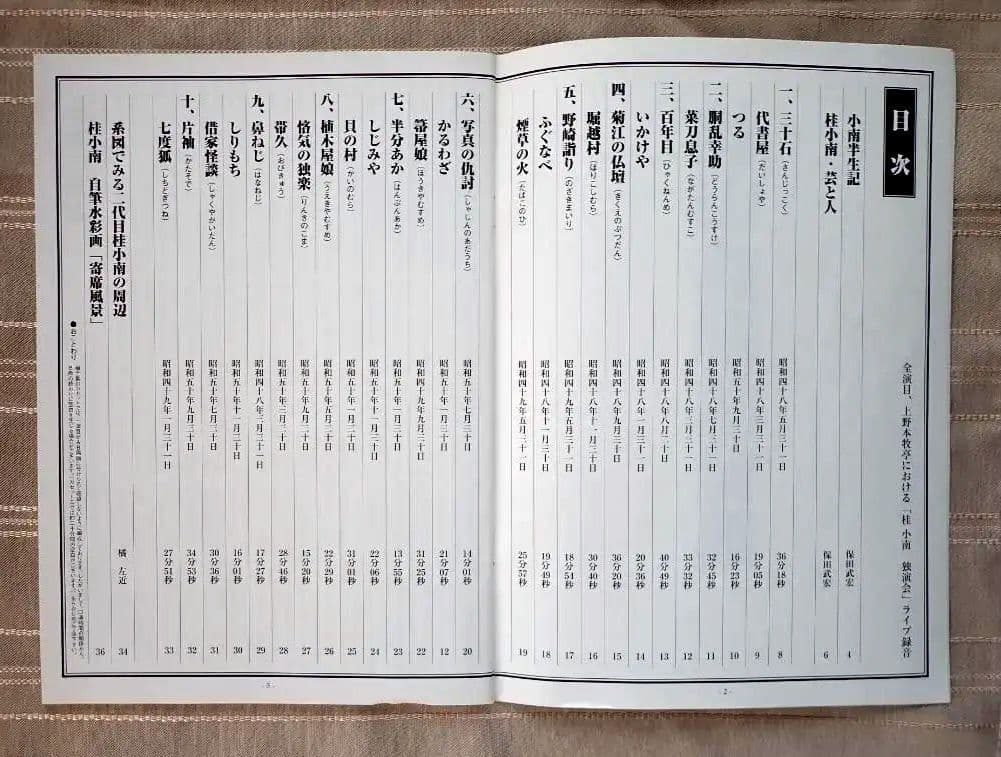 目次
全演目、上野本牧亭における「桂 小南 独演会」ライブ録音
小南半生記 保田武宏 4
桂小南・芸と人 保田武宏 6
一、三十石(さんじっこく) 昭和四十八年五月三十一日 36分18秒 8
代書屋(だいしょや) 昭和四十八年三月三十一日 19分05秒 9
つる 昭和五十年九月三十日 16分23秒 10
二、胴乱幸助(どうらんこうすけ) 昭和四十八年七月三十一日 32分45秒 11
菜刀息子(ながたんむすこ) 昭和四十八年三月三十日 33分32秒 12
三、百年目(ひゃくねんめ) 昭和四十八年八月二十日 40分49秒 13
いかけや 昭和四十九年三月三十日 20分36秒 14
四、菊江の仏壇(きくえのぶつだん) 昭和四十九年三月三十一日 36分20秒 15
堀越村(ほりこしむら) 昭和四十八年十一月三十日 30分40秒 16
五、野崎詣り(のざきまいり) 昭和四十九年五月三十一日 18分54秒 17
ふぐなべ 昭和四十八年十一月三十日 19分49秒 18
煙草の火(たばこのひ) 昭和四十九年五月三十一日 25分57秒 19
- 2 -
六、写真の仇討(しゃしんのあだうち) 昭和五十年七月三十日 14分01秒 20
かるわざ 昭和五十年一月三十日 21分07秒 12
箒屋娘(ほうきやむすめ) 昭和四十九年九月三十日 31分25秒 22
七、半分あか(はんぶんあか) 昭和五十年一月三十日 13分55秒 23
しじみや 昭和五十年十一月三十日 22分06秒 24
貝の村(かいのむら) 昭和五十年三月三十日 31分01秒 25
八、植木屋娘(うえきやむすめ) 昭和五十年五月三十日 22分29秒 26
悋気の独楽(りんきのこま) 昭和四十九年七月三十日 15分20秒 27
帯久(おびきゅう) 昭和五十年三月三十日 28分46秒 28
九、鼻ねじ(はなねじ) 昭和四十八年三月三十日 17分27秒 29
しりもち 昭和五十年十一月三十日 16分01秒 30
借家怪談(しゃくやかいだん) 昭和五十年七月三十日 30分36秒 31
十、片袖(かたそで) 昭和四十九年三月三十日 34分53秒 32
七度狐(しちどぎつね) 昭和四十九年一月三十一日 27分51秒 33
系図でみる二代目桂小南の周辺 橘 左近 34
桂小南 自筆水彩画「寄席風景」 36
●おことわり
- 3 -